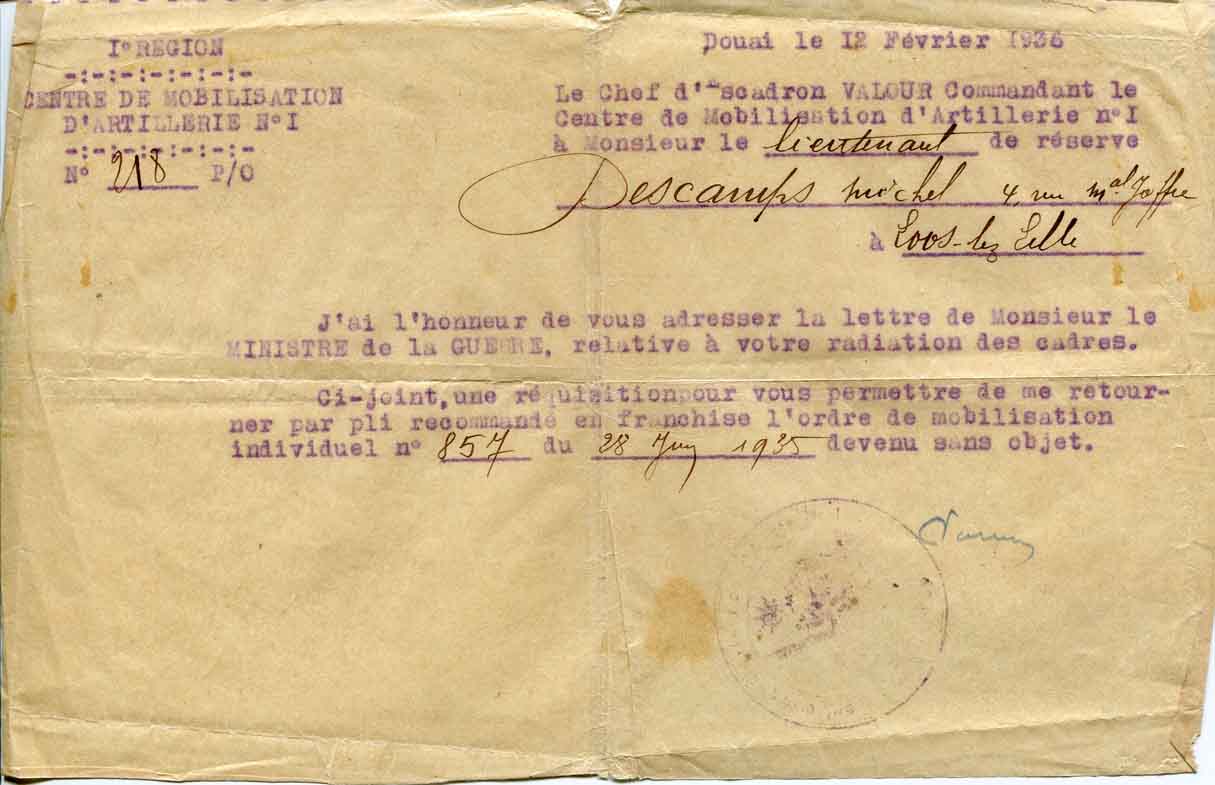 I° REGION
-:-:-:-:-:-:-
CENTRE DE MOBILISATION
D'ARTILLERIE N°I
-:-:-:-:-:-:-
N° 218 P/O
Douai le 12 Février 1936
Le Chef d'Escadron VALOUR Commandant le
Centre de Mobilisation d'Artillerie n°I
à Monsieur le lieutenant de réserve
Descamps Michel 4, rue Mal Joffre
à Loos-lez Lille
J'ai l'honneur de vous adresser la lettre de Monsieur le
MINISTRE de la GUERRE, relative à votre radiation des cadres.
Ci-joint, une réquisitionpour vous permettre de me retour-
ner par pli recommandé en franchise l'ordre de mobilisation
individuel n° 857 du 28 Juin 1935 devenu sans objet.